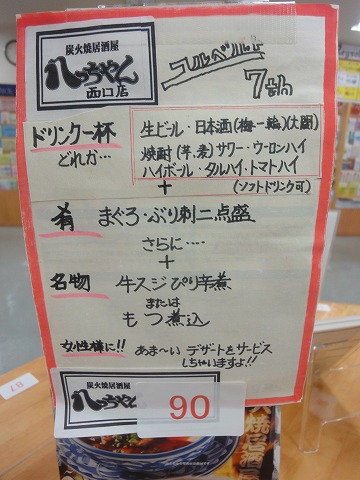 炭火焼居酒屋
八っちゃん
西口店
コルベルに
ドリンク一杯
どれか…
生ビール・日本酒(梅一輪)(大関)
焼酎(芋、麦)サワー・ウーロンハイ
ハイボール・タルハイ・トマトハイ
+
(ソフトドリンク可)
肴 まぐろ・ぶり刺二点盛
さらに….
+
名物 牛スジぴり辛煮
または
もつ煮込
女性様に!! あま〜い デザートをサービス
しちゃいますよ!!
炭火焼居酒屋
八っちゃん
90
87